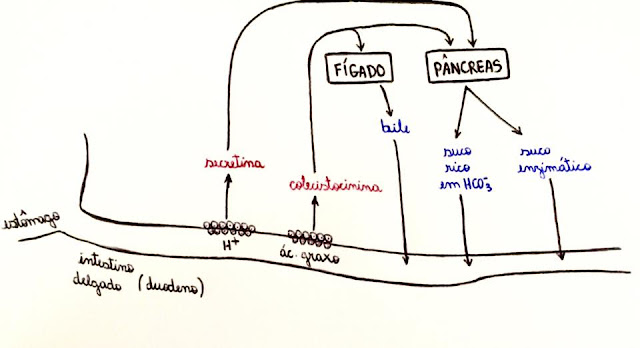 FÍGADO
PÂNCREAS
bile
secretina
colecistocinina
suco
rico
em HCO₃⁻
suco
enzimático
estômago
H⁺
ác. graxo
intestino
delgado (duodeno)